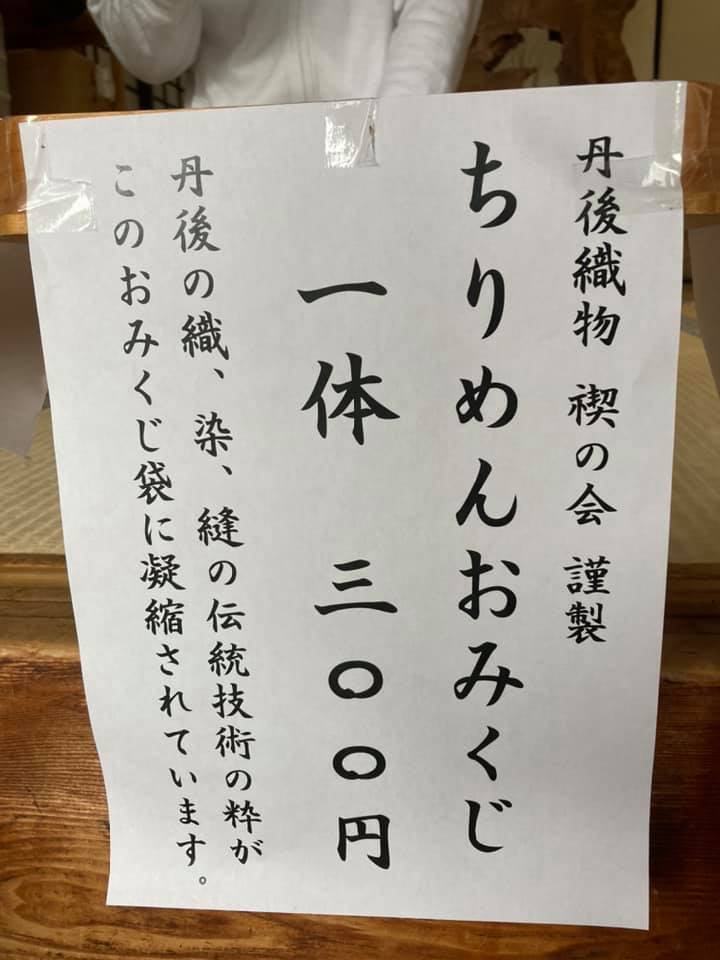 丹後織物 禊の会 謹製
ちりめんおみくじ
一体 三〇〇円
丹後の織、染、縫の伝統技術の粋が
このおみくじ袋に凝縮されています。